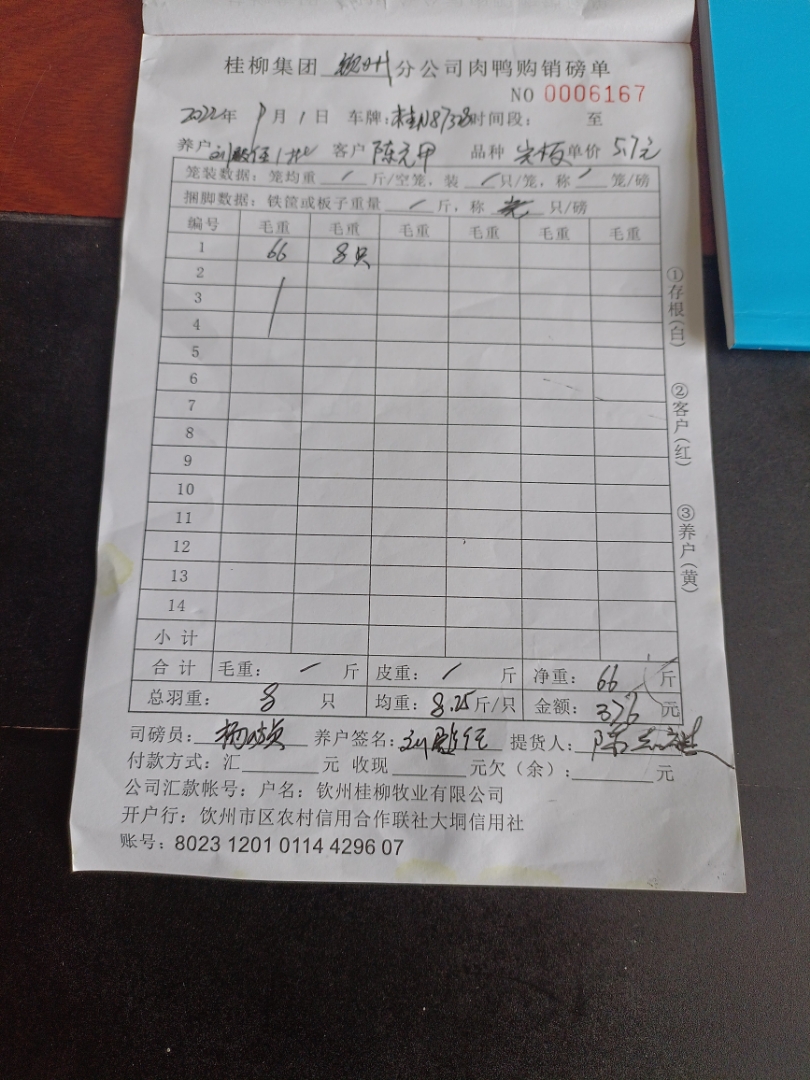 桂柳集团 钦州 分公司肉鸭购销磅单
NO 0006167
2022年 9月 1日 车牌: 桂N8738 时间段: 至
养户 客户 陈元甲 品种 单价 5.7元
笼装数据: 笼均重 / 斤/空笼, 装 / 只/笼, 称 / 笼/磅
捆脚数据: 铁筐或板子重量 / 斤, 称 只/磅
编号 毛重 毛重 毛重 毛重 毛重 毛重
1 66 8只
2
3
4
5
6
7
8
9
10
11
12
13
14
小计
合计 毛重: / 斤 皮重: / 斤 净重: 66 斤
总羽重: 8 只 均重: 8.25斤/只 金额: 376 元
司磅员: 养户签名: 提货人:
付款方式: 汇 元 收现 元欠(余): 元
公司汇款帐号: 户名: 钦州桂柳牧业有限公司
开户行: 钦州市区农村信用合作联社大垌信用社
账号: 8023 1201 0114 4296 07
①存根(白)
②客户(红)
③养户(黄)